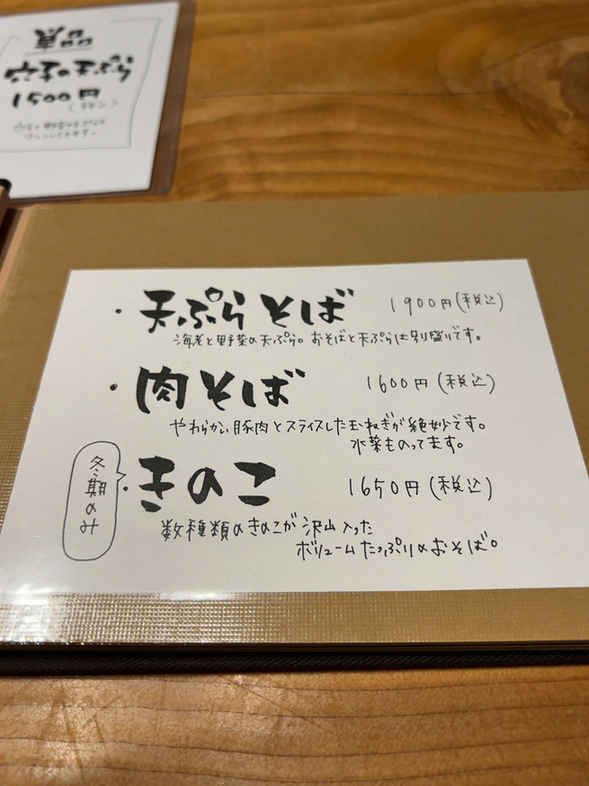 穴子の天ぷら
1500円
・天ぷらそば 1900円(税込)
海老と野菜の天ぷら。おそばと天ぷらは別盛りです。
・肉そば 1600円(税込)
やわらかい豚肉とスライスした玉ねぎが絶妙です。
水菜ものってます。
冬期のみ
・きのこ 1650円(税込)
数種類のきのこが沢山入った
ボリュームたっぷりのおそば。